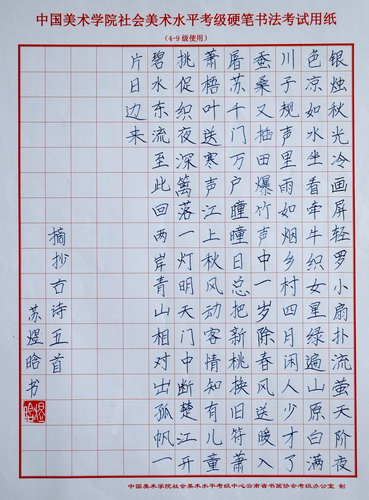 中国美术学院社会美术水平考级硬笔书法考试用纸
(4-9级使用)
银烛秋光冷画屏轻罗小扇扑流萤天阶夜
色凉如水坐看牵牛织女星绿遍山原白满
川子规声里雨如烟乡村四月闲人少才了
蚕桑又插田爆竹声中一岁除春风送暖入
屠苏千门万户曈曈日总把新桃换旧符萧
萧梧叶送寒声江上秋风动客情知有儿童
挑促织夜深篱落一灯明天门中断楚江开
碧水东流至此回两岸青山相对出孤帆一
片日边来
摘抄古诗五首
苏煜晗书
中国美术学院社会美术水平考级云南省书画协会考级办公室 制